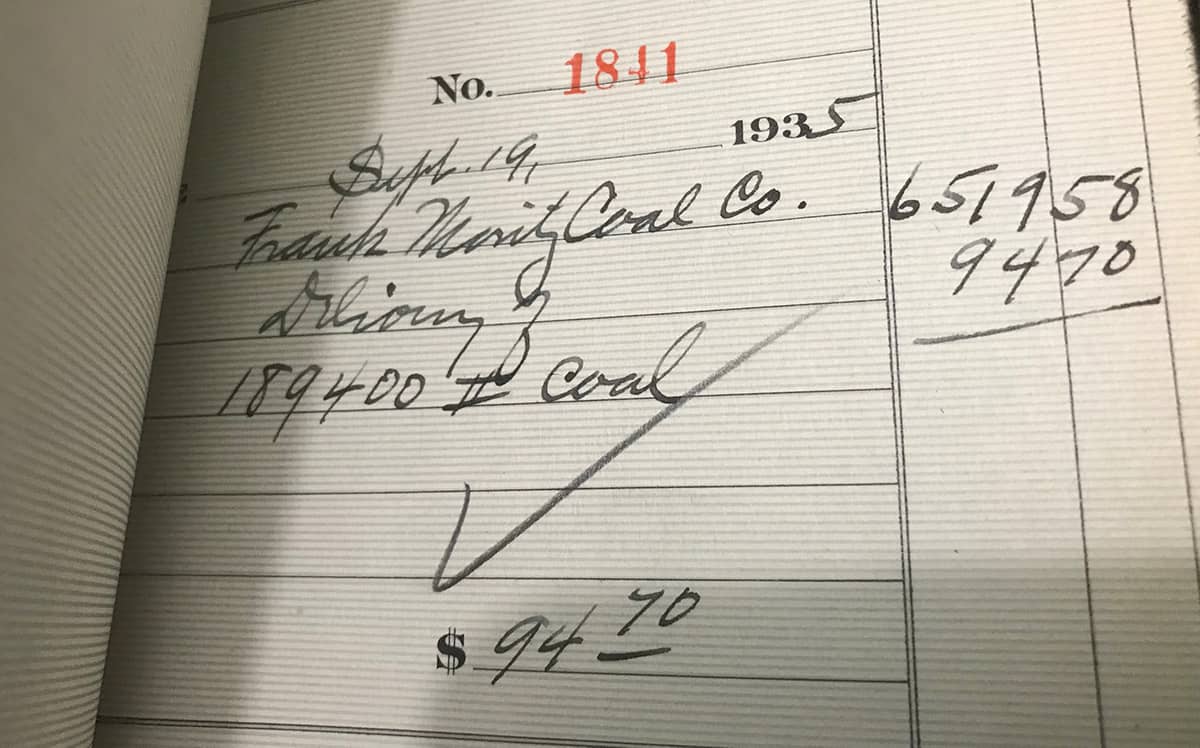 No. 1841
1935
Sept. 19,
Frank Moritz Coal Co. 6519 58
Delivery of 94 70
189400 # Coal
$ 94 70